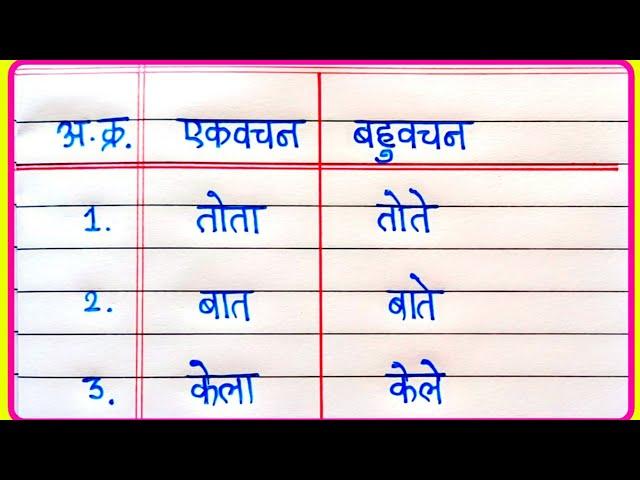 अ.क्र. एकवचन बहुवचन
1. तोता तोते
2. बात बाते
3. केला केले